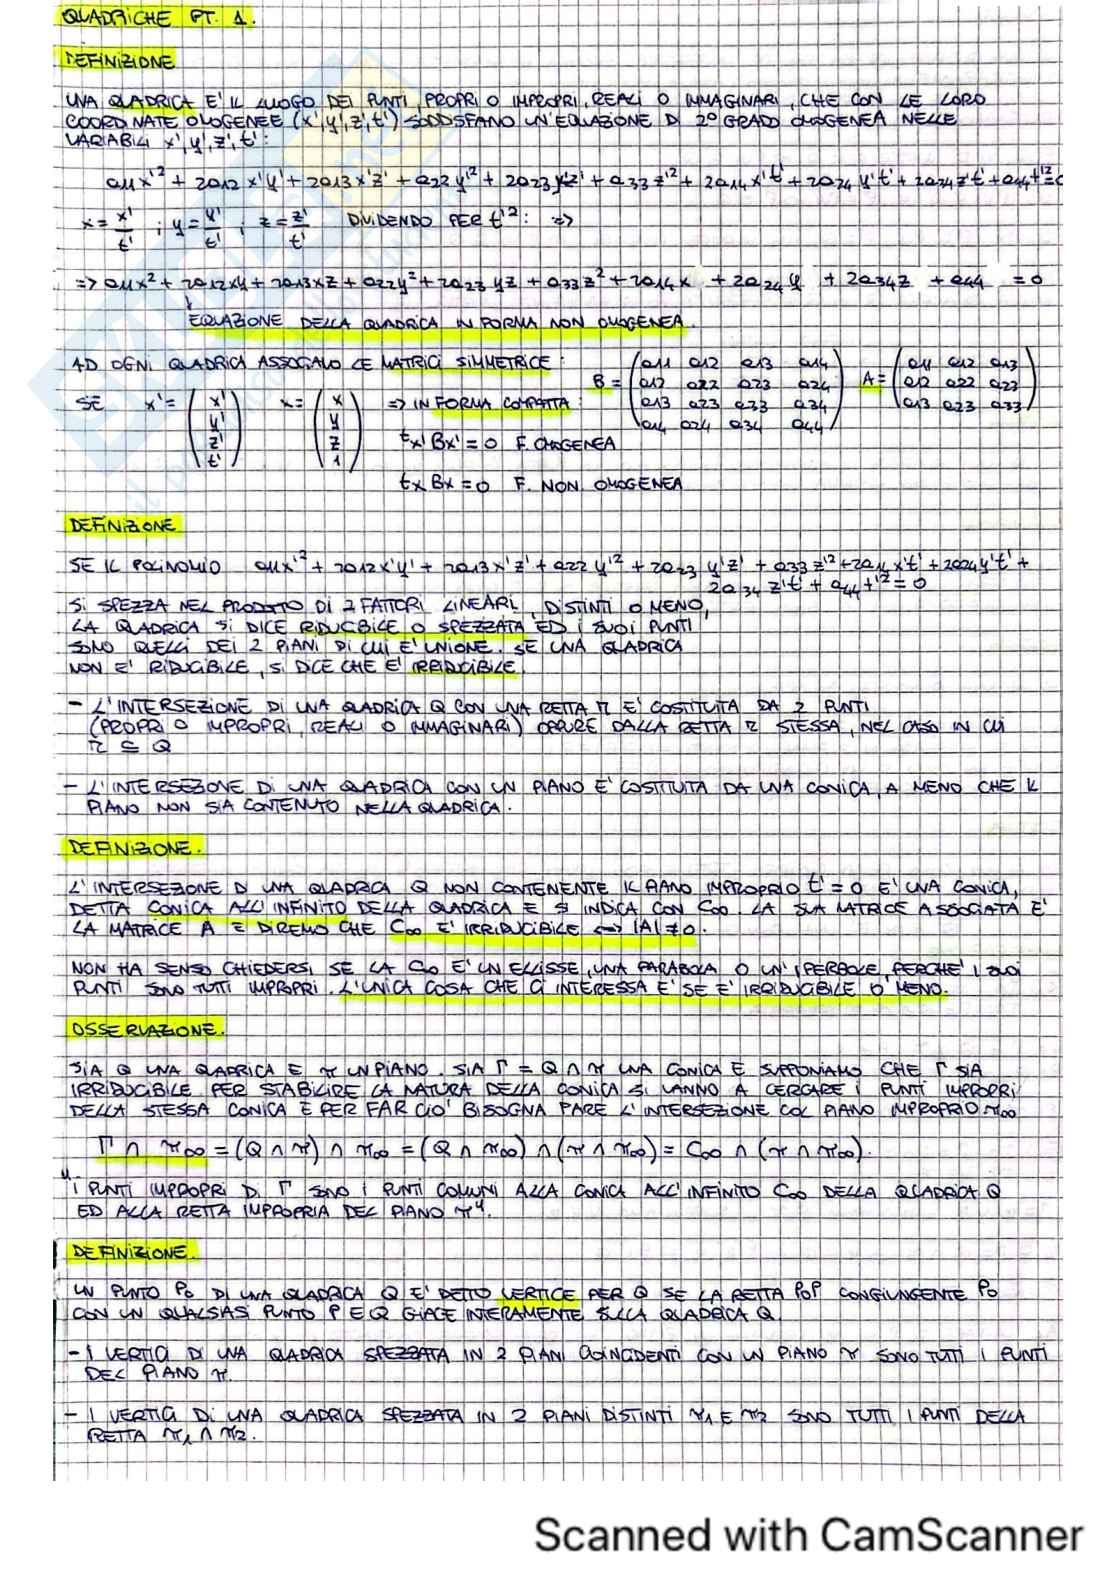 QUADRICHE PT. 1.
DEFINIZIONE
UNA QUADRICA E' IL LUOGO DEI PUNTI, PROPRI O IMPROPRI, REALI O IMMAGINARI, CHE CON LE LORO
COORDINATE OMOGENEE (x',y',z',t') SODDISFANO UN'EQUAZIONE DI 2º GRADO OMOGENEA NELLE
VARIABILI x',y',z',t':
a11x'² + 2a12 x'y' + 2a13 x'z' + a22 y'² + 2a23 y'z' + a33 z'² + 2a14 x't' + 2a24 y't' + 2a34 z't' + a44 t'² = 0
x = x'/t' ; y = y'/t' ; z = z'/t' DIVIDENDO PER t'² : =>
=> a11x² + 2a12xy + 2a13xz + a22y² + 2a23 yz + a33 z² + 2a14 x + 2a24 y + 2a34z + a44 = 0
EQUAZIONE DELLA QUADRICA IN FORMA NON OMOGENEA.
AD OGNI QUADRICA ASSOCIAMO LE MATRICI SIMMETRICE : B = (a11 a12 a13 a14 / a12 a22 a23 a24 / a13 a23 a33 a34 / a14 a24 a34 a44) A = (a11 a12 a13 / a12 a22 a23 / a13 a23 a33)
SE x' = (x' y' z' t') x = (x y z 1) => IN FORMA COMPATTA :
tx' Bx' = 0 F. OMOGENEA
tx Bx = 0 F. NON OMOGENEA
DEFINIZIONE
SE IL POLINOMIO a11x'² + 2a12x'y' + 2a13x'z' + a22 y'² + 2a23 y'z' + a33 z'² + 2a14 x't' + 2a24y't' +
2a34 z't' + a44 t'² = 0
SI SPEZZA NEL PRODOTTO DI 2 FATTORI LINEARI, DISTINTI O MENO,
LA QUADRICA SI DICE RIDUCIBILE O SPEZZATA ED I SUOI PUNTI
SONO QUELLI DEI 2 PIANI DI CUI E' UNIONE. SE UNA QUADRICA
NON E' RIDUCIBILE, SI DICE CHE E' IRRIDUCIBILE.
- L'INTERSEZIONE DI UNA QUADRICA Q CON UNA RETTA r E' COSTITUITA DA 2 PUNTI
(PROPRI O IMPROPRI, REALI O IMMAGINARI) OPPURE DALLA RETTA r STESSA, NEL CASO IN CUI
r ⊆ Q
- L'INTERSEZIONE DI UNA QUADRICA CON UN PIANO E' COSTITUITA DA UNA CONICA, A MENO CHE IL
PIANO NON SIA CONTENUTO NELLA QUADRICA.
DEFINIZIONE.
L'INTERSEZIONE DI UNA QUADRICA Q NON CONTENENTE IL PIANO IMPROPRIO t' = 0 E' UNA CONICA,
DETTA CONICA ALL'INFINITO DELLA QUADRICA E SI INDICA CON C∞. LA SUA MATRICE ASSOCIATA E'
LA MATRICE A E DIREMO CHE C∞ E' IRRIDUCIBILE <=> |A| ≠ 0.
NON HA SENSO CHIEDERSI SE LA C∞ E' UN ELLISSE, UNA PARABOLA O UN'IPERBOLE, PERCHE' I SUOI
PUNTI SONO TUTTI IMPROPRI. L'UNICA COSA CHE CI INTERESSA E' SE E' IRRIDUCIBILE O MENO.
OSSERVAZIONE.
SIA Q UNA QUADRICA E π UN PIANO. SIA Γ = Q ∩ π UNA CONICA E SUPPONIAMO CHE Γ SIA
IRRIDUCIBILE. PER STABILIRE LA NATURA DELLA CONICA SI VANNO A CERCARE I PUNTI IMPROPRI
DELLA STESSA CONICA E PER FAR CIO' BISOGNA FARE L'INTERSEZIONE COL PIANO IMPROPRIO π∞
Γ ∩ π∞ = (Q ∩ π) ∩ π∞ = (Q ∩ π∞) ∩ (π ∩ π∞) = C∞ ∩ (π ∩ π∞).
"I PUNTI IMPROPRI DI Γ SONO I PUNTI COMUNI ALLA CONICA ALL'INFINITO C∞ DELLA QUADRICA Q
ED ALLA RETTA IMPROPRIA DEL PIANO π".
DEFINIZIONE.
UN PUNTO P0 DI UNA QUADRICA Q E' DETTO VERTICE PER Q SE LA RETTA P0P CONGIUNGENTE P0
CON UN QUALSIASI PUNTO P E Q GIACE INTERAMENTE SULLA QUADRICA Q.
- I VERTICI DI UNA QUADRICA SPEZZATA IN 2 PIANI COINCIDENTI CON UN PIANO π SONO TUTTI I PUNTI
DEL PIANO π.
- I VERTICI DI UNA QUADRICA SPEZZATA IN 2 PIANI DISTINTI π1 E π2 SONO TUTTI I PUNTI DELLA
RETTA π1 ∩ π2.
Scanned with CamScanner